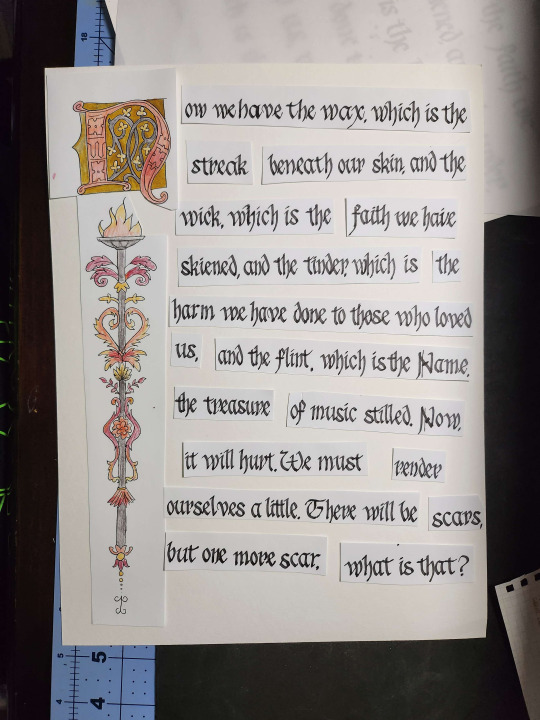 18
Now we have the wax, which is the
streak beneath our skin, and the
wick, which is the faith we have
skiened, and the tinder, which is the
harm we have done to those who loved
us, and the flint, which is the Name,
the treasure of music stilled. Now,
it will hurt. We must render
ourselves a little. There will be scars,
but one more scar, what is that?
5
4